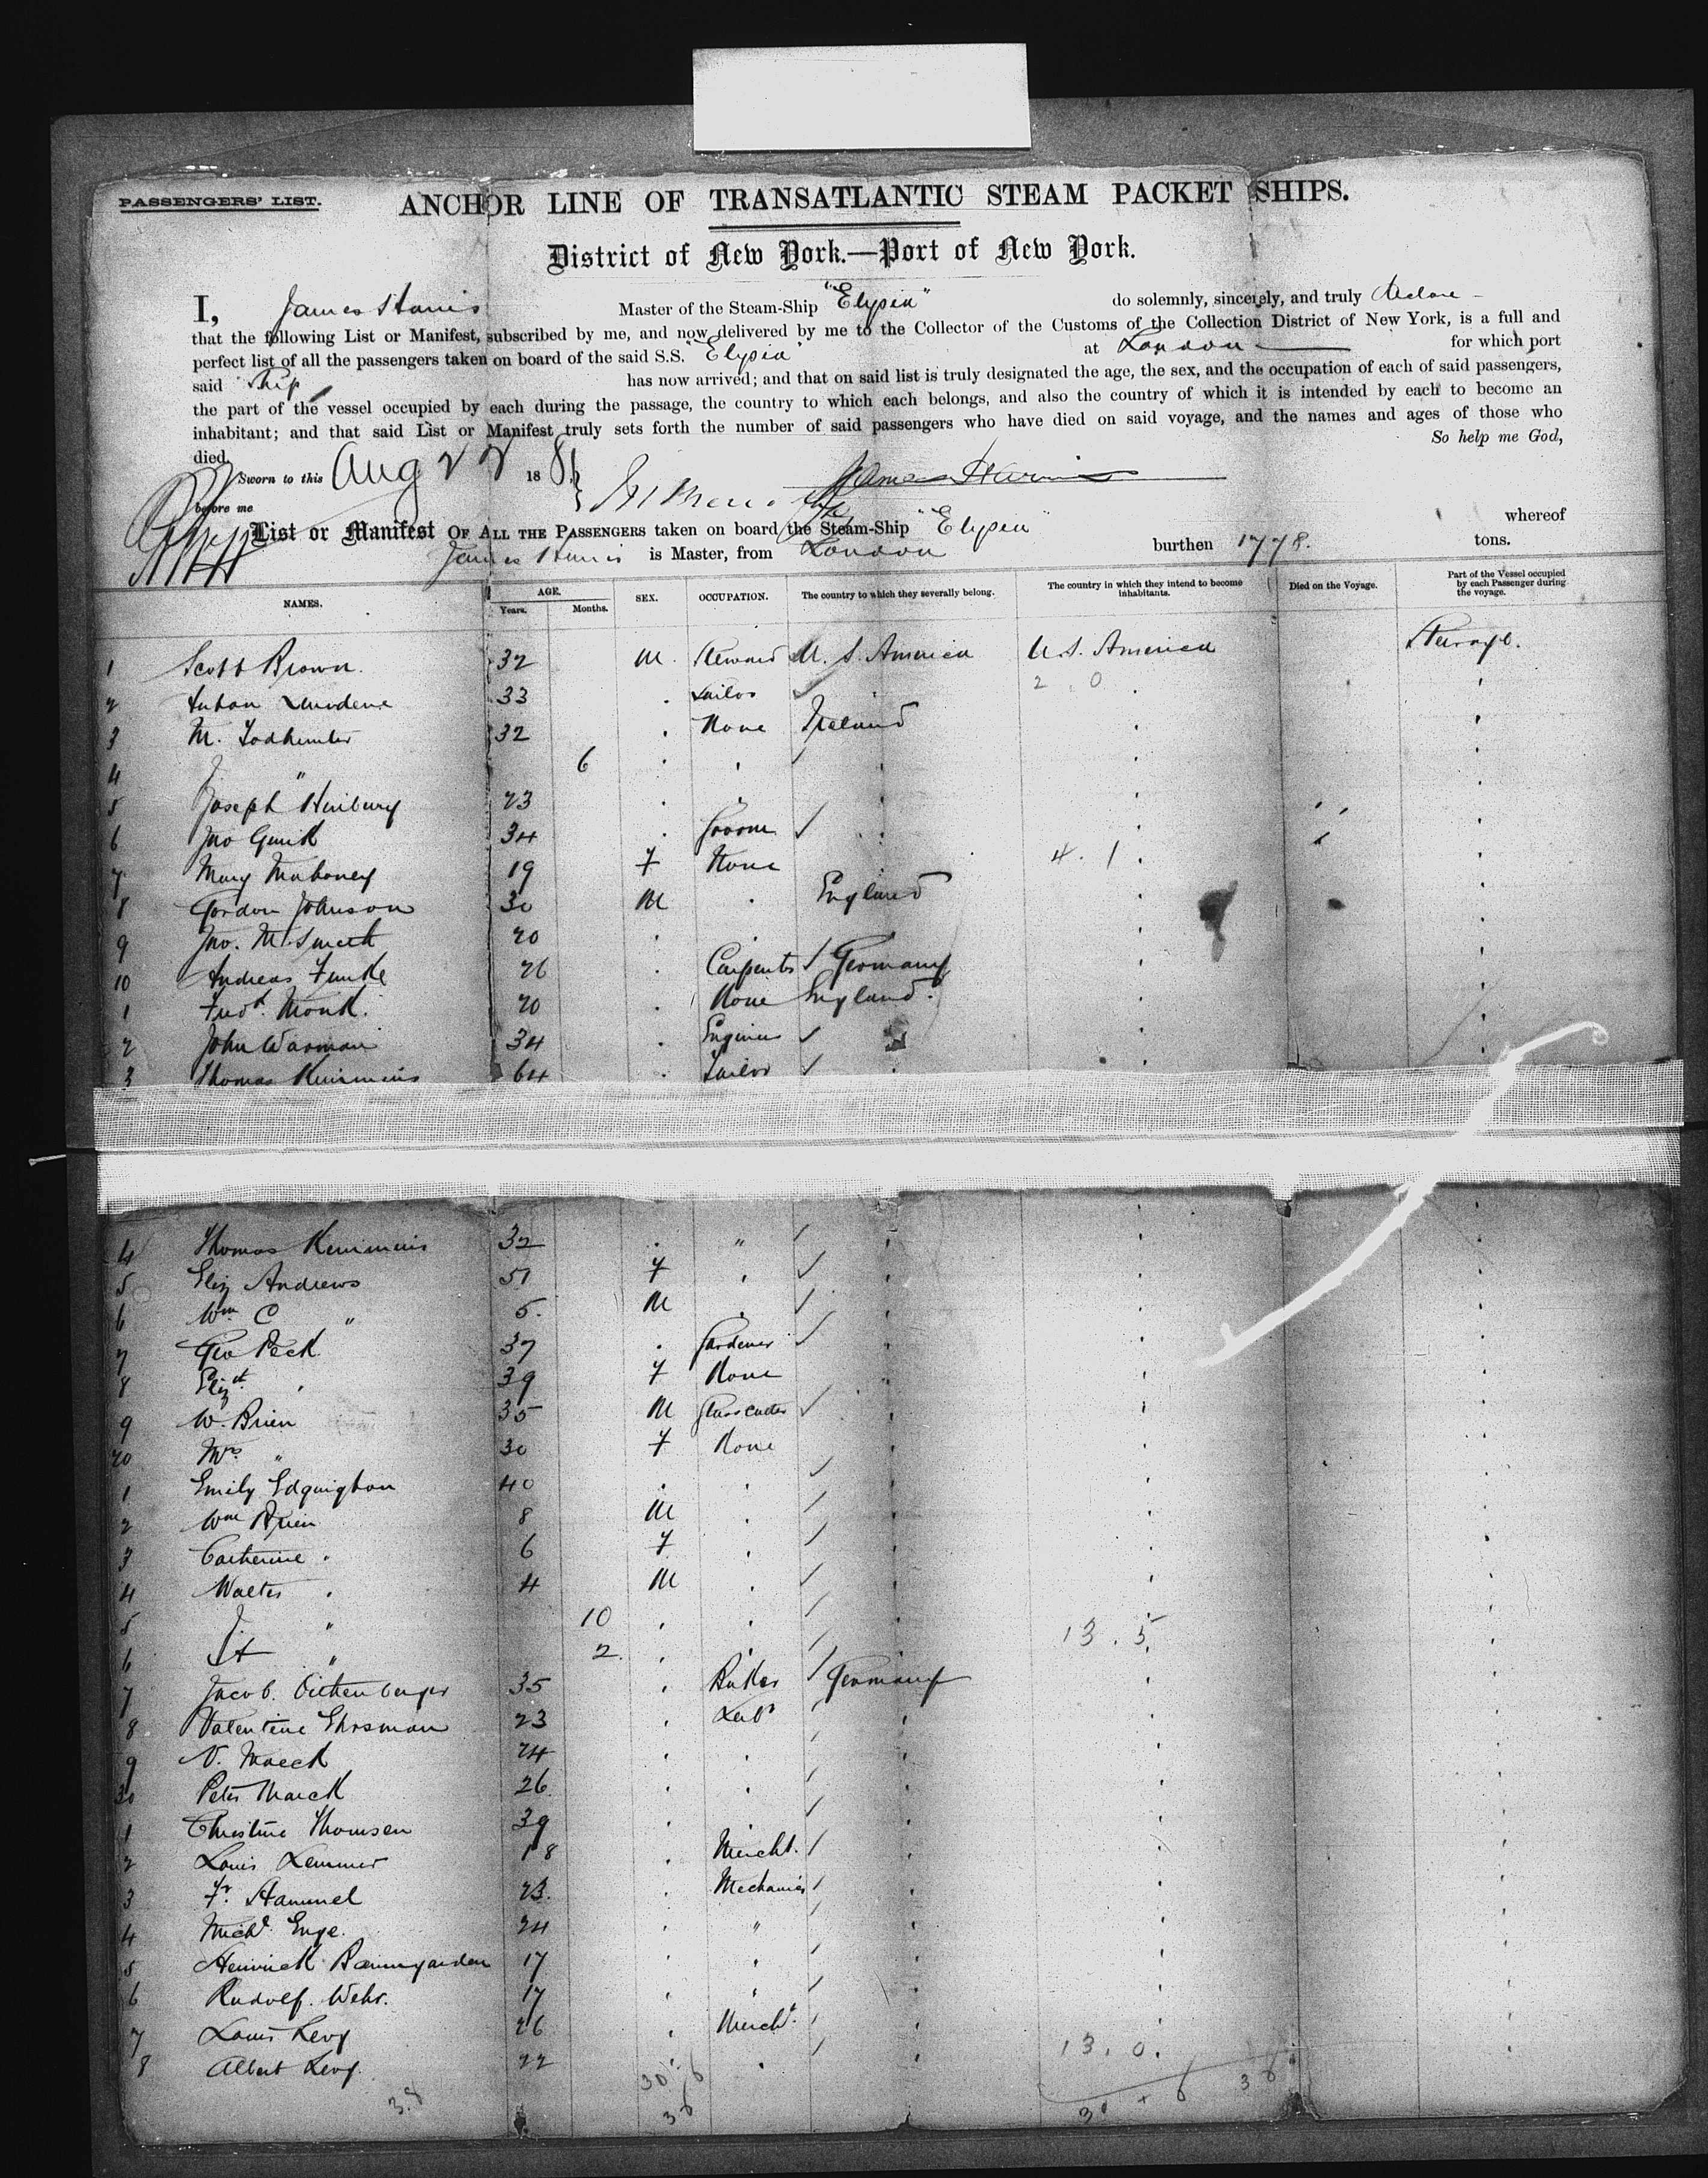 PASSENGERS' LIST.
ANCHOR LINE OF TRANSATLANTIC STEAM PACKET SHIPS.
District of New York.—Port of New York.
I, James Harris Master of the Steam-Ship "Elysia" do solemnly, sincerely, and truly declare
that the following List or Manifest, subscribed by me, and now delivered by me to the Collector of the Customs of the Collection District of New York, is a full and
perfect list of all the passengers taken on board of the said S.S. "Elysia" at London for which port
said Ship has now arrived; and that on said list is truly designated the age, the sex, and the occupation of each of said passengers,
the part of the vessel occupied by each during the passage, the country to which each belongs, and also the country of which it is intended by each to become an
inhabitant; and that said List or Manifest truly sets forth the number of said passengers who have died on said voyage, and the names and ages of those who
died. So help me God,
Sworn to this Aug 22 188 James Harris
before me
List or Manifest OF ALL THE PASSENGERS taken on board the Steam-Ship "Elysia" whereof
James Harris is Master, from London burthen 1778. tons.
NAMES. AGE. Years. Months. SEX. OCCUPATION. The country to which they severally belong. The country in which they intend to become inhabitants. Died on the Voyage. Part of the Vessel occupied by each Passenger during the voyage.
1 Scott Brown. 32 M. Steward U. S. America U.S. America Steerage.
2 33 2.0
3 M. Todhunter 32 None Ireland
4 " 6
5 Joseph 23
6 Jno 34 Groom
7 Mary Mahoney 19 F None 4.1
8 Gordon Johnson 30 M England
9 Jno. M. Smith 20
10 Andreas Funke 26 Carpenter Germany
1 Fredk. Monk. 20 None England.
2 John Warman 34 Engineer
3 Thomas 64 Tailor
4 Thomas 32 "
5 Eliz Andrews 51 F
6 Wm C " 5. M
7 Geo Peck 37 Gardener
8 Elizth. 39 F None
9 W. Brien 35 M Glasscutter
20 Mrs " 30 F None
1 Emily 40
2 Wm Brien 8 M
3 Catherine 6 F
4 Walter 4 M
5 J " 10 13.5
6 " 2
7 Jacob 35 Baker Germany
8 Valentine Ehrsman 23 Labr
9 N. Maeck 24
30 Peter Maeck 26
1 Christine Thomsen 39
2 Louis Lemmer 18 Mercht.
3 Fr. Hammel 23. Mechanic
4 Michl. Enge. 24 "
5 Heinrich Baumgarden 17
6 Rudolf. Wehr. 17
7 Louis Levy 26 Mercht.
8 Albert Levy. 22 13.0.
38 30 6 30 + 6 36
36